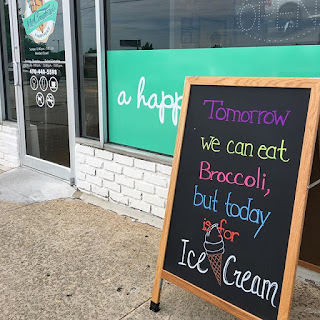 a happ
Tomorrow
we can eat
Broccoli,
but today
is for
Ice Cream